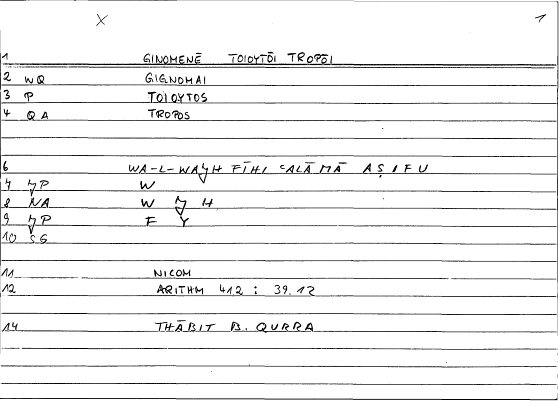 X 1
1 GINOMENĒ TOIOYTŌI TROPŌI
2 WQ GIGNOMAI
3 P TOIOYTOS
4 QA TROPOS
6 WA-L-WAǦH FĪHI ʿALĀ MĀ AṢIFU
7 ǦP W
8 NA W Ǧ H
9 ǦP F Y
10 SG
11 NICOM
12 ARITHM 412 : 39.12
14 THĀBIT B. QURRA